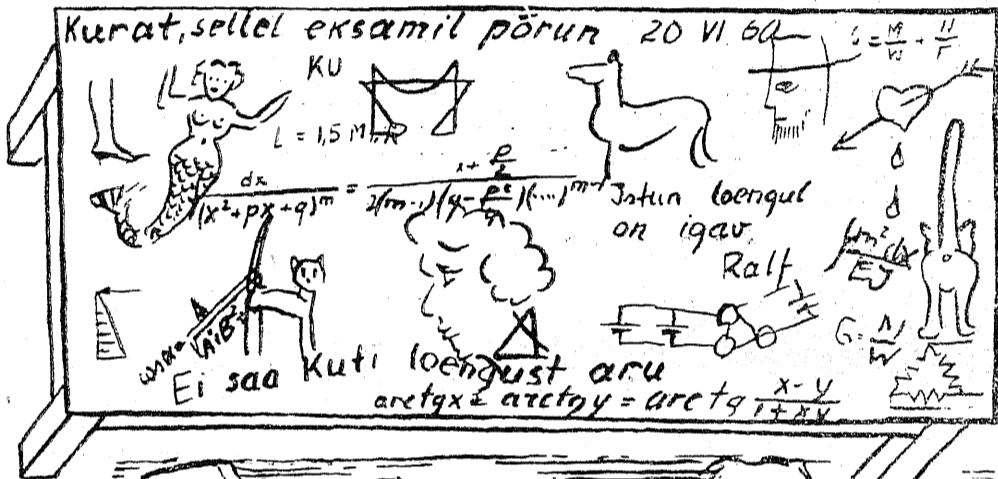 Kurat, sellel eksamil põrun 20 VI 60
KU
L = 1,5 M
dx / (x²+px+q)ᵐ = x + p/2 / 2(m-1)(q-p²/4)(....)ᵐ⁻¹
Istun loengul
on igav.
Ralf
Ei saa Kuti loengust aru
arctgx = arctgy = arctg x-y / 1+xy